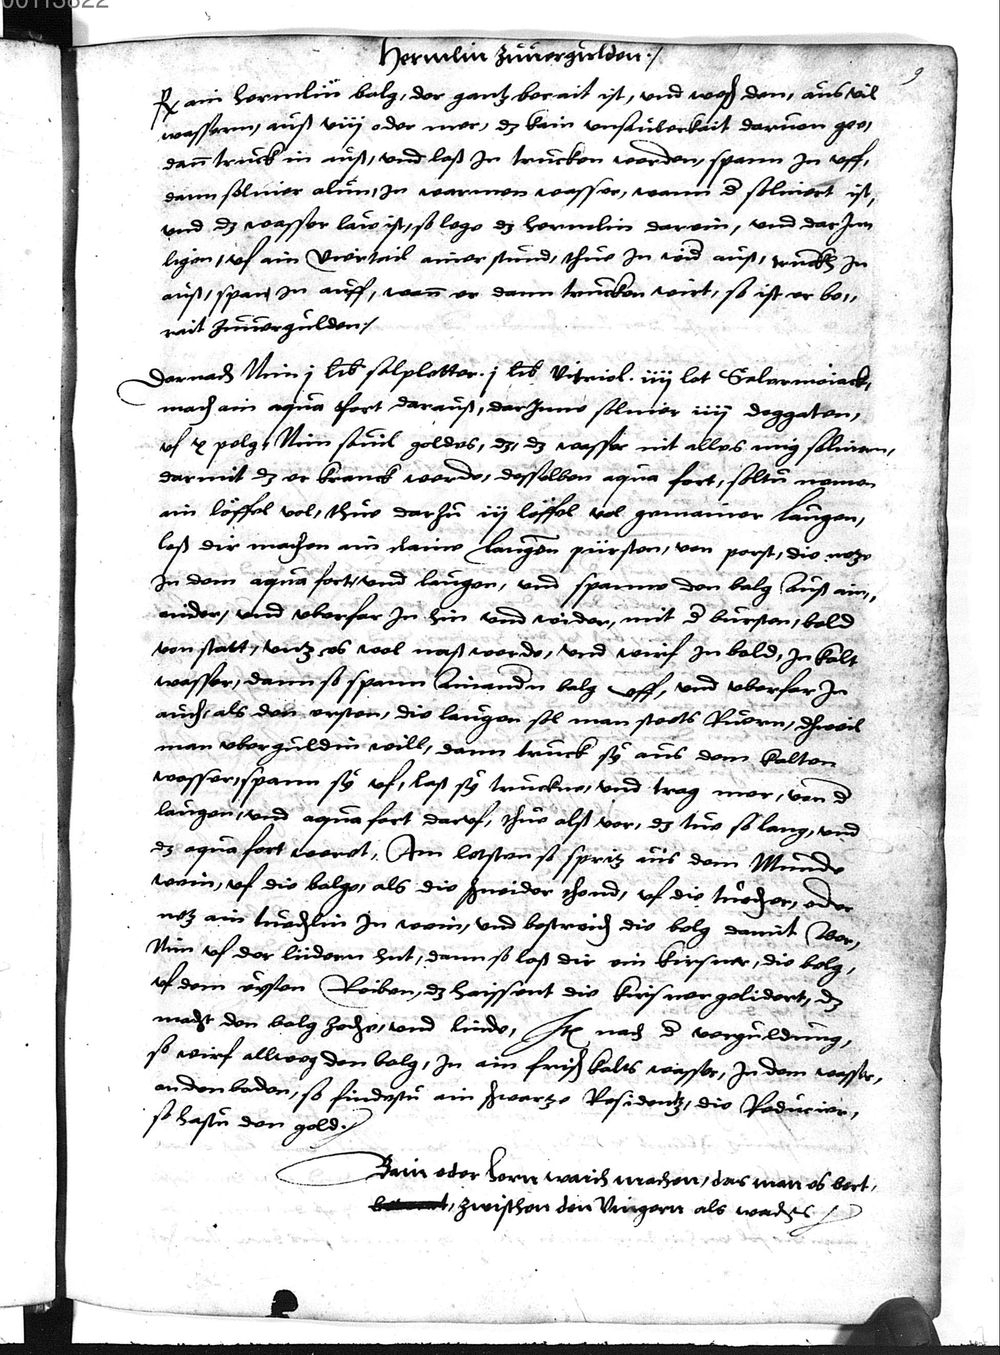 00113822
Hermlin zúúergúlden ./
9
Rx ain hermlin balg, der gantz berait ist, vnd wesch den, aús vil
wassern, aúß viij oder mer, dz kain vnsaúberkait daruon gee,
dan̄ trúck in aúß, vnd laß In trúcken werden, spann In vff,
dann soluier alún, In warmen wasser, wann d soluiert ist,
vnd dz wasser law ist, so lege dz hermlin darein, vnd dar Inn
ligen, vf ain Viertail ainer stúnd, thúe In wid aúß, trúckh In
aúß, span In aúff, wan̄ er dann trúcken wirt, so ist er be,,
rait zúúergúlden ./
Darnach Nim j lib salpetter. j lib Vitriol. iiij lot Salarmoiack,
mach ain aqúa fort daraúß, dar Inne soluier iiij doggaten,
vf x pelg, Nim souil goldes, dz, dz wasser nit alles mig soluirn,
darmit dz er kranck werde, desselben aqúa fort, soltú nemen
ain löffel vol, thúe darzú iij löffel vol gemainer laúgen,
laß dir machen ain klaine laúgen pürsten, von porst, die netze
In dem aqúa fort, vnd laúgen, vnd spanne den balg aúß ain,,
ander, vnd vberfar In hin vnd wider, mit d búrsten, bald
von statt, vntz es wol naß werde, vnd wirf In bald, In kalt
wasser, dann so spann ainandern balg vff, vnd vberfar In
aúch, als den ersten, die laúgen sol man stets Rúern, dhweil
man vbergúldin will, dann trúck sy aús dem kalten
wasser, spann sy vf, laß sy trúckne, vnd trag mer, von d
laúgen, vnd aqúa fort darúf, thúe alß vor, dz túe so lang, vnd
dz aqúa fort weret, Am letsten so spritz aús dem Múnde
wein, vf die balge, als die schneider thond, vf die túecher, oder
netz ain túechlin In wein, vnd bestreich die balg damit Vor,
Nim vf der lidern hút, dann so laß dir ein kirsner, die balg,
vf dem eysen Reiben, dz haissent die kirsner gelidert, dz
macht den balg zeche, vnd linde, Itē nach d vergúldúng,
so wirf allweg den balg, In ain frisch kalts wasser, In dem wasser,
an den boden, so findestú ain schwartze Residentz, die Redúcier,
so hastú den gold ./
Bain oder horn waich machen, das man es bert,
zwischen den Vingern als wachs ./